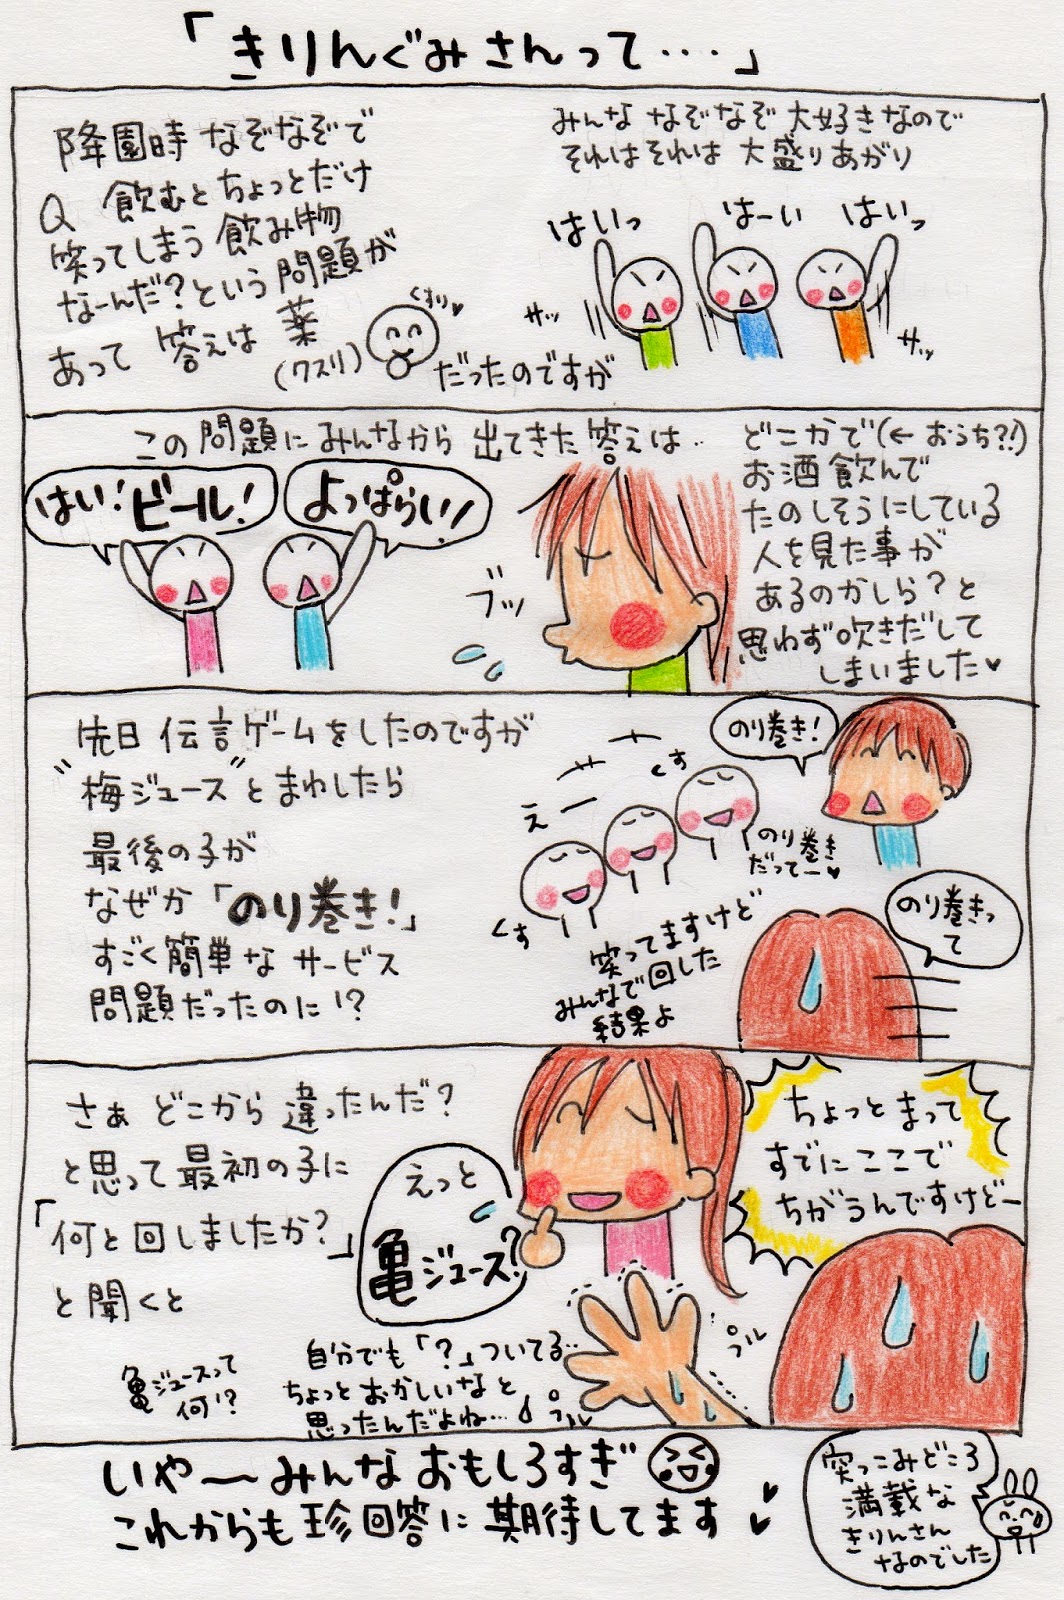 「きりんぐみさんって・・・」
降園時 なぞなぞで
Q 飲むとちょっとだけ
笑ってしまう 飲み物
なーんだ？という 問題が
あって 答えは 薬
(クスリ)
くすり♥
だったのですが
みんな なぞなぞ 大好きなので
それはそれは 大盛りあがり
はいっ
はーい
はいっ
サッ
サッ
この問題に みんなから 出てきた 答えは‥
はい！ビール！
よっぱらい！
ブッ
どこかで(←おうち?!)
お酒 飲んで
たのしそうにしている
人を見た事が
あるのかしら？と
思わず 吹きだして
しまいました♥
先日 伝言ゲームをしたのですが
"梅ジュース"とまわしたら
最後の子が
なぜか「のり巻き！」
すごく簡単な サービス
問題だったのに!?
のり巻き！
くす
えー
のり巻き
だってー♥
くす
笑ってますけど
みんなで回した
結果よ
のり巻きっ
て
さぁ どこから 違ったんだ？
と思って 最初の子に
「何と回しましたか？」
と聞くと
えっと
亀ジュース？
ちょっと まって
すでに ここで
ちがうんですけどー
亀ジュースって
何!?
自分でも「？」ついてる‥
ちょっと おかしいな と
思ったんだよね…
プル
プル
いや〜 みんな おもしろすぎ
これからも 珍回答に 期待してます
突っこみどころ
満載な
きりんさん
なのでした